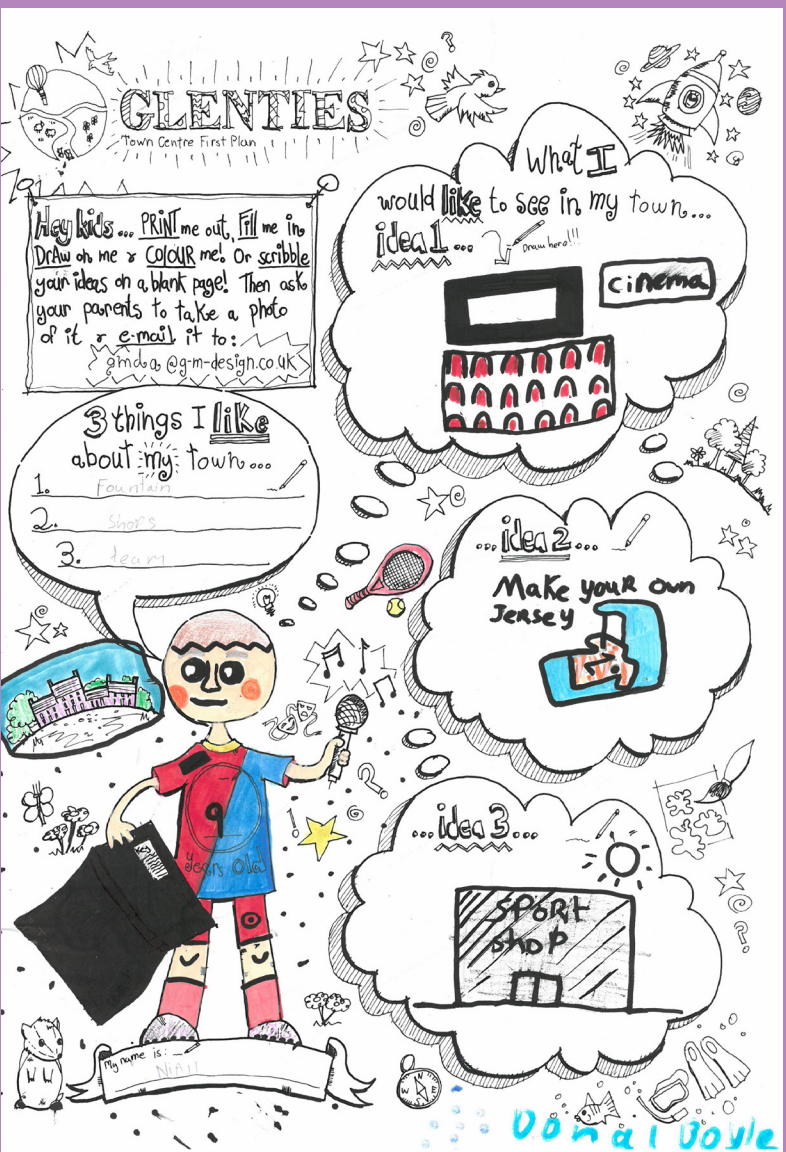 GLENTIES
Town Centre First Plan
Hey kids... PRINT me out, Fill me in
DrAw on me & COlOUR me! Or scribble
your ideas on a blank page! Then ask
your parents to take a photo
of it & e-mail it to:
gmda@g-m-design.co.uk
3 things I like
about my town...
1. Fountain
2. Shops
3. team
What I
would like to see in my town...
idea 1...
Draw here!!!
cinema
...idea 2...
Make youR own
JERSEY
...idea 3...
SPORt
shop
9
years old
My name is:
NiAll
N
E
S
W
Donal Boyle